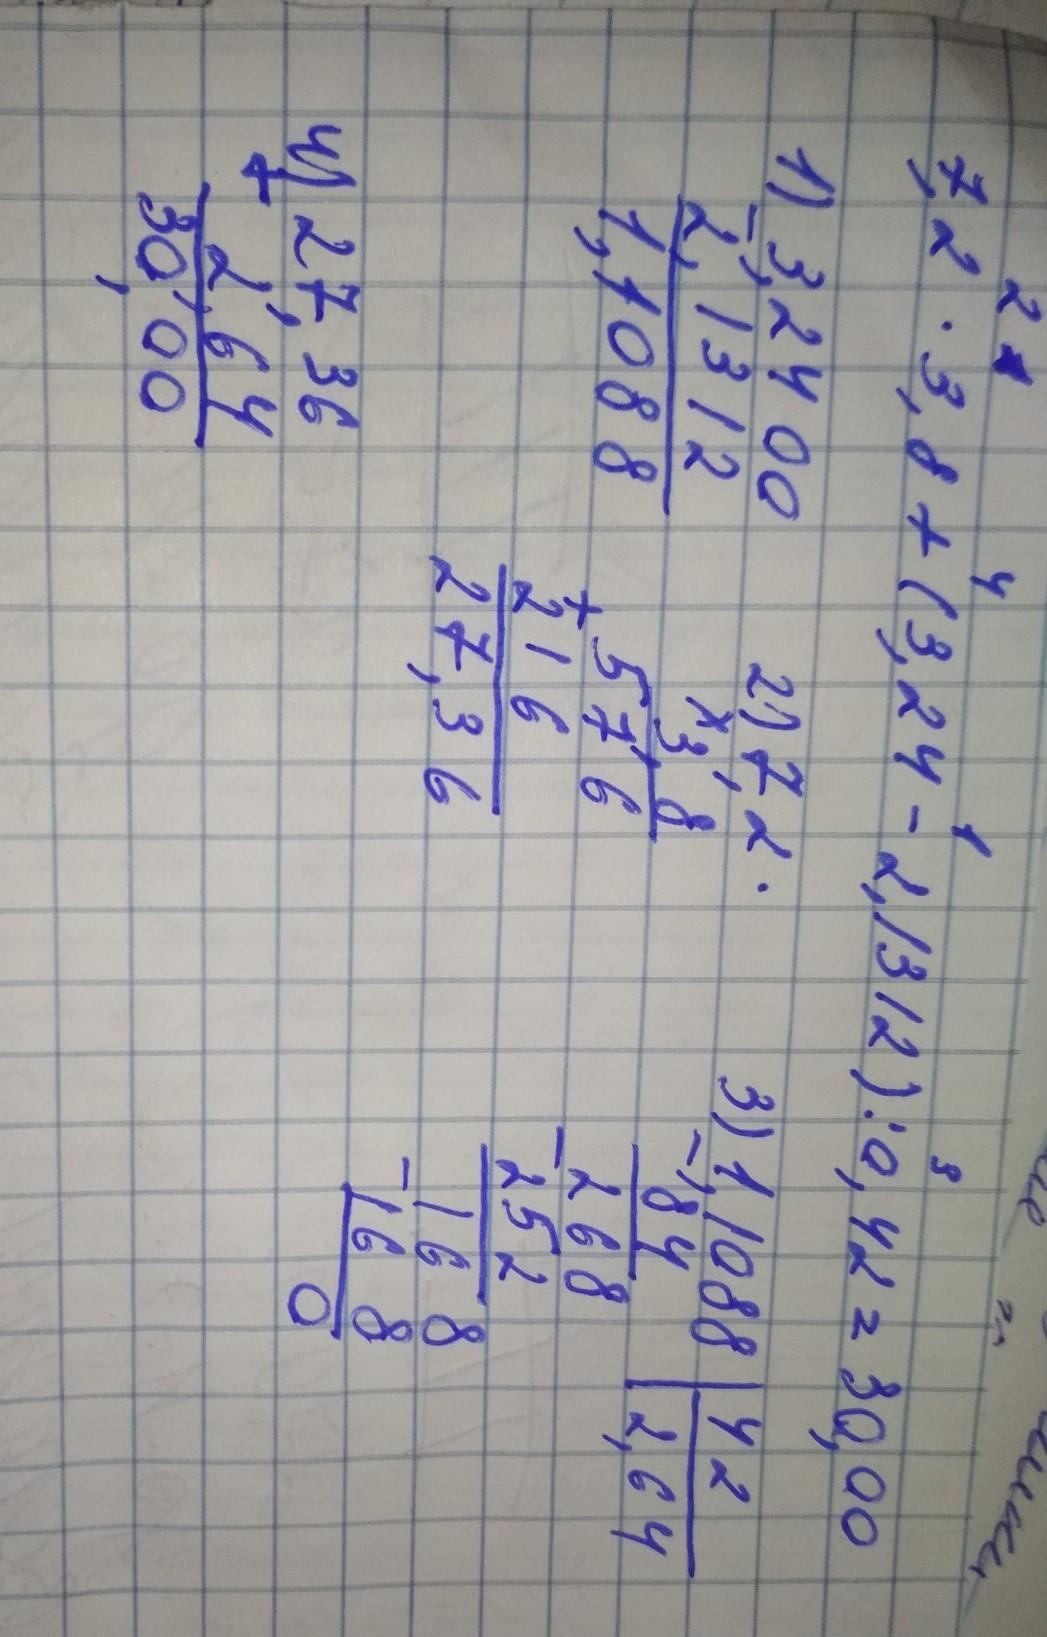 2 4 1 3
7,2 · 3,8 + (3,24 - 2,1312) : 0,42 = 30,00
1) 3,2400
- 2,1312
1,1088
2) 7,2 ·
× 3,8
576
+ 216
27,36
3) 1,1088 | 42
- 84 | 2,64
268
- 252
168
- 168
0
4) 27,36
+ 2,64
30,00